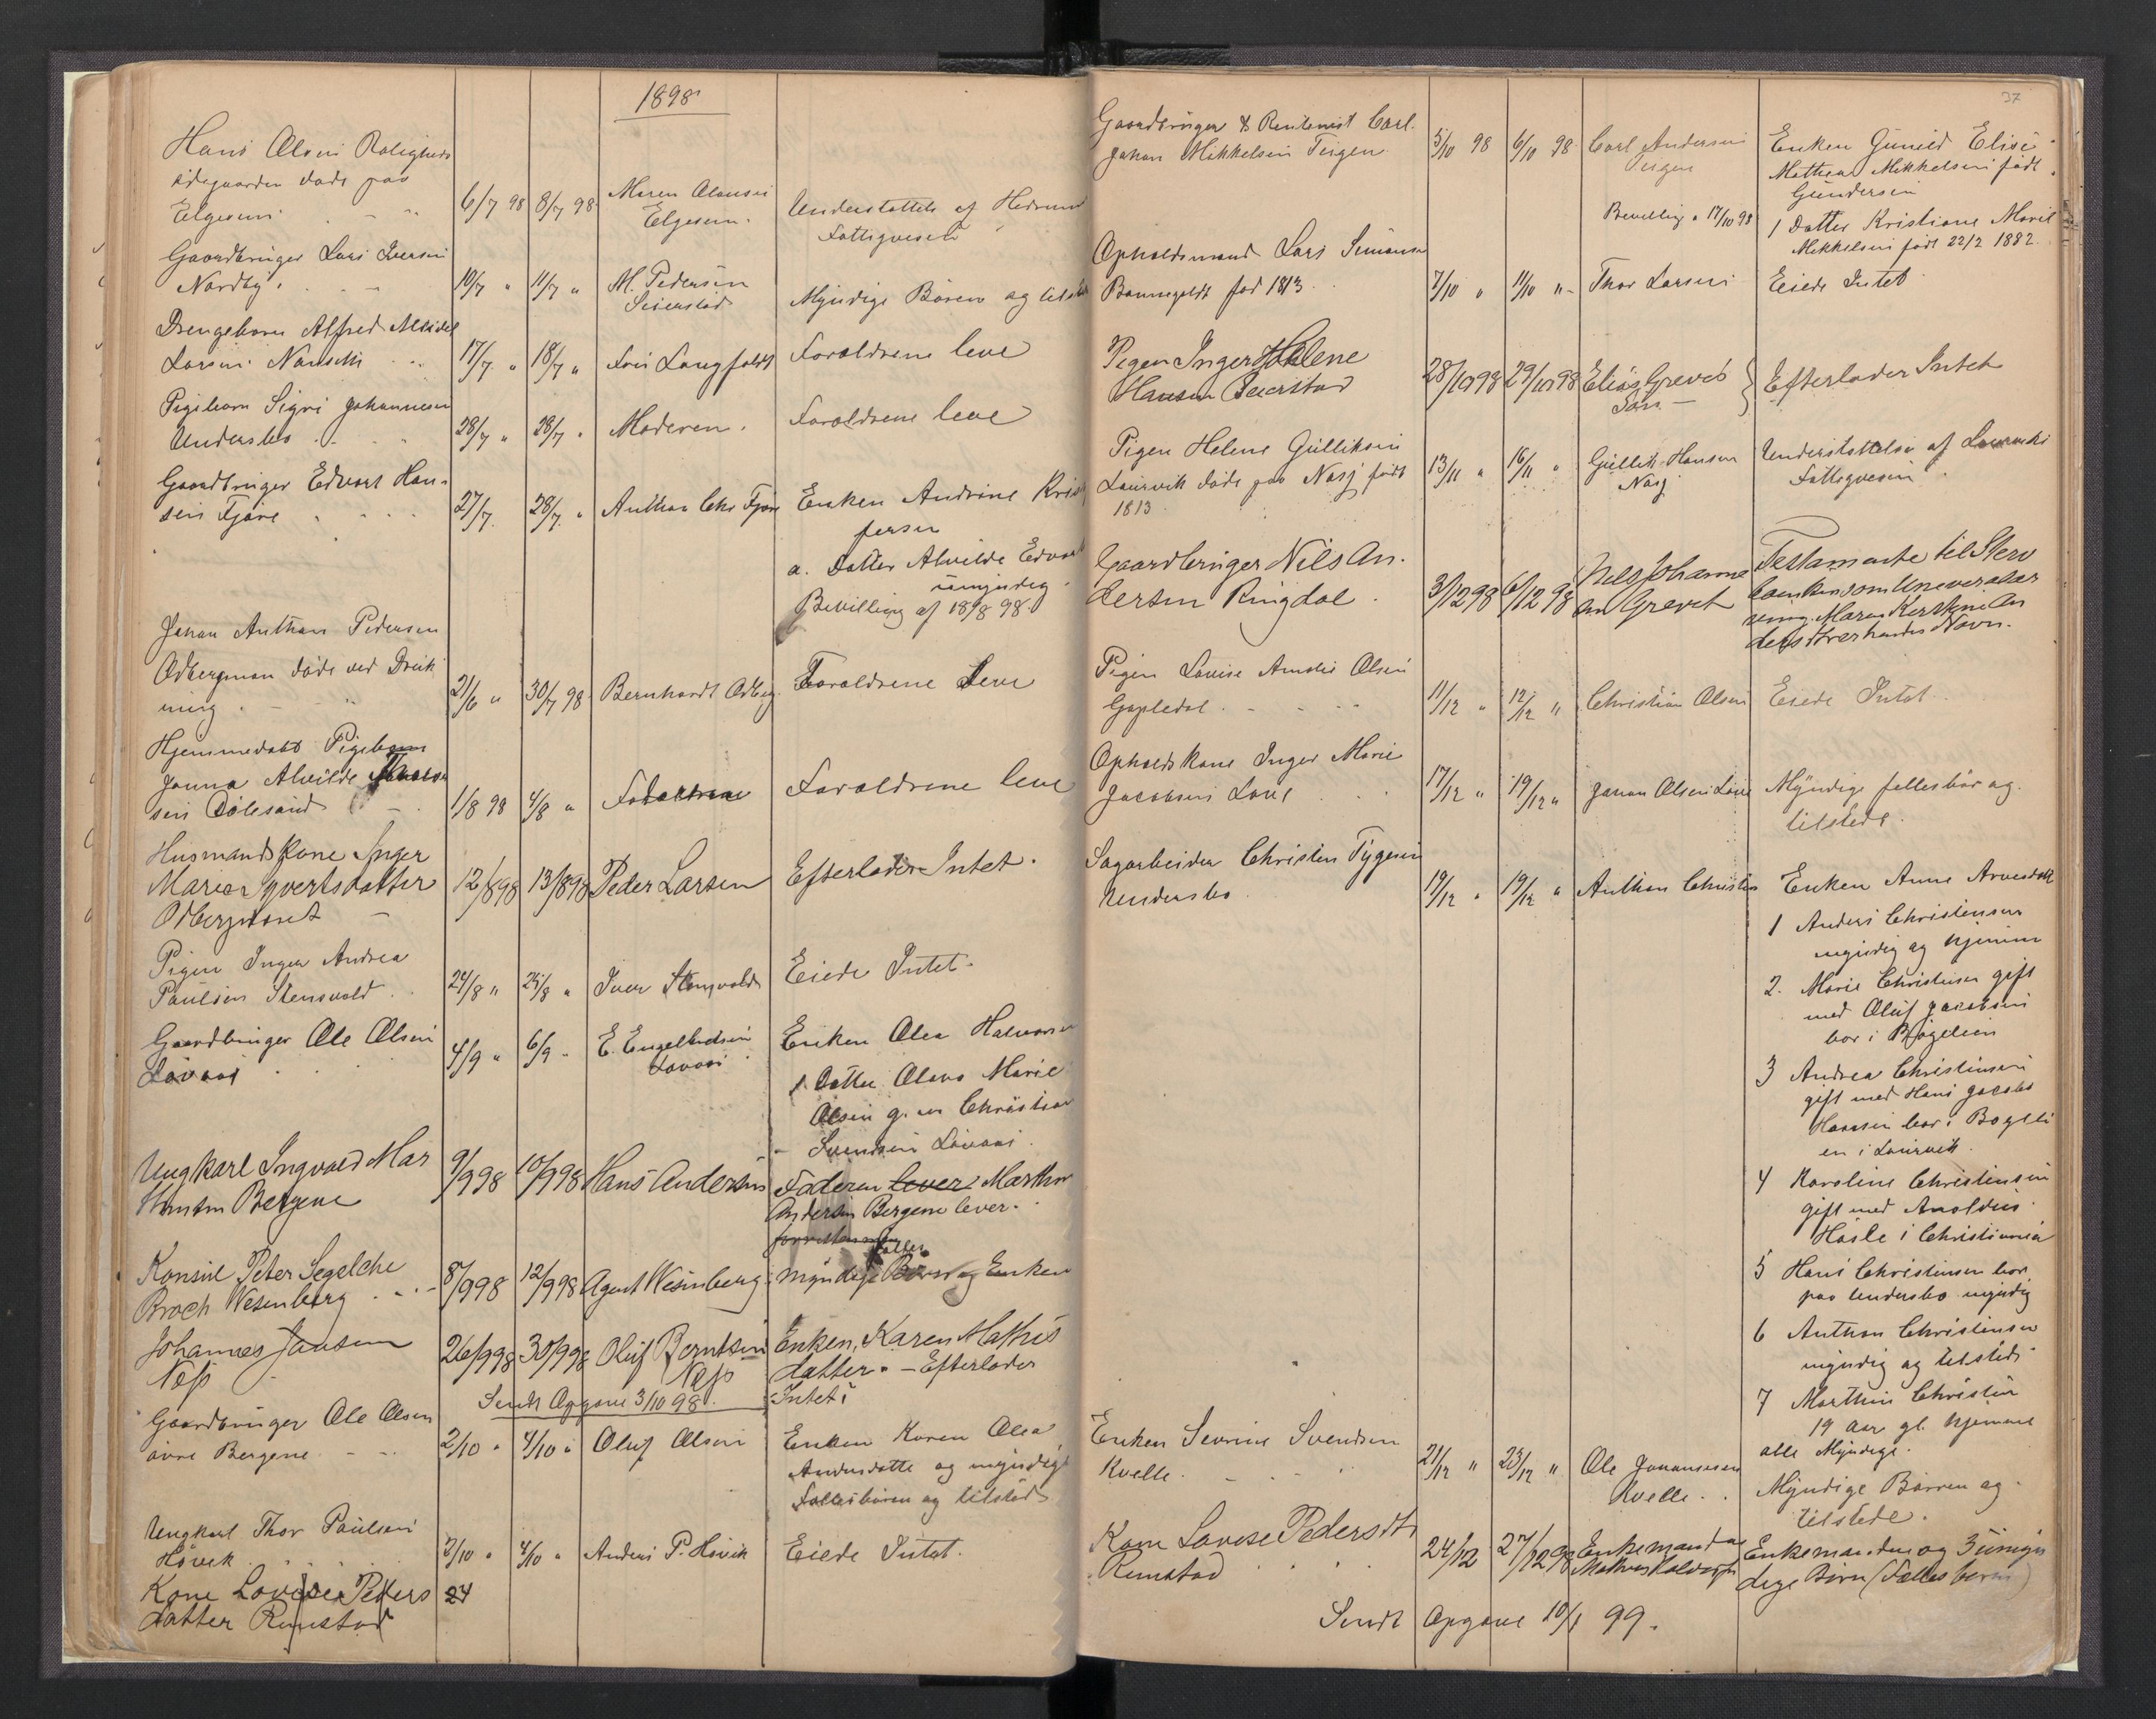 1898
Hans Olsen Roligheds
ødegaarden døde paa
Elgesem 6/7 98 8/7 98 Maren Olausen Understøttels af Hedrum
Elgesem. Fattigvesen
Gaardbruger Lars Iversen
Nordby. 10/7 " 11/7 " M. Pedersen Myndige Børen og
Seierstad
Drengebarn Alfred
Larsen Nanseth 17/7 " 18/7 " Langfeldt Foraldrene leve
Pigebarn Sigri Johannesen
Undersbo 28/7 " 28/7 " Moderen. Foraldrene leve
Gaardbruger Edvart Han-
sen Fjære 27/7 28/7 " Anthon Chr Fjære Enken Andrine
fersen
a. Datter Alvilde
umyndig
Bevilling af 18/8 98.
Johan Anthon Pedersen
Odbergmoen døde ved Druk
ning 21/6 " 30/7 98 Bernhardt Odberg Foraldrene Leve
Hjemmedøbt Pigebarn
Janna Alvilde
sen Dølesand 1/8 98 4/8 " Foraldrene leve
Husmandskone Inger
Marie Syvertsdatter 12/8 98 13/8 98 Peder Larsen Efterlader Intet.
Odbergmoret
Pigen Inger Andrea
Paulsen Stensvold 24/8 " 25/8 " Iver Stensvold Eiede Intet-
Gaardbruger Ole Olsen
Lovaas 4/9 " 6/9 " E. Engelbretsen Enken Olea Halvorsen
Lovaas
1 Datter Olava Marie
Olsen g. m Christian
Svendsen Lovaas.
Ungkarl Ingvald Mar
thinsen Bergene 9/9 98 10/9 98 Hans Andersen Faderen lever Marthin
Andersen Bergene lever.
Konsul Peter Segelcke
Broch Wesenberg 8/9 98 12/9 98 Agent Wesenberg myndige Børn og Enken
fælles
Johannes Jansen
Næss 26/9 98 30/9 98 Oluf Berntsen Enken, Karen Mathis
Næss datter. - Efterlader
Sendt Opgave 3/10 98. Intet.
Gaardbruger Ole Olsen
øvre Bergene 2/10 " 4/10 " Oluf Olsen Enken Karen Olea
Andersdatte og myndige
Fellesbøren og tilsted
Ungkarl Thor Paulsen
Høvik 2/10 " 4/10 " Anders P. Høvik Eiede Intet.
Kone Lovise Peders 24
datter Rimstad
37
Gaardbruger & Rentenist Carl
Johan Mikkelsen Teigen 5/10 98 6/10 98 Carl Andersen Enken Gunild Elise
Teigen Mathea Mikkelsen født
Gundersen
Bevilling a 17/10 98 1 Datter Kristiane Marie
Mikkelsen født 22/2 1882.
Opholdsmand Lars Simonsen
Bommegeldt fød 1813 7/10 " 11/10 " Thor Larsen Eiede Intet
Pigen Inger Helene
Hansen Seierstad 28/10 98 29/10 98 Elias Greves Efterlader Intet
Søn
Pigen Helene Gulliksen
Laurvik døde paa Nasj født 13/11 " 16/11 " Gullik Hansen Understøttelse af Laurviks
1813 Nasj Fattigvesen
Gaardbruger Nils An-
dersen Ringdal 3/12 98 6/12 98 Nils Johanne Testamente til Sterv
an Grevet boenken som Universalar
ving. Maren Kerstine An
dersdtr er hendes Navn.
Pigen Lovise Amalie Olsen
Gopledal 11/12 " 12/12 " Christian Olsen Eiede Intet
Opholdskone Inger Marie
Jacobsen Love 17/12 " 19/12 " Johan Olsen Love Myndige fellesbør og
tilstede.
Sagarbeider Christen Tygesen
Undersbo 19/12 " 19/12 " Anthon Christen Enken Anne
1 Anders Christensen
myndig og hjemme
2. Marie Christensen gift
med Oluf Jacobsen
bor i Bøgelien
3 Andrea Christensen
gift med Hans Jacob
Hansen bor i Bøgeli
en i Laurvik
4 Karoline Christensen
gift med Arnoldus
Hasle i Christiania
5 Hans Christensen bor
paa Undersbo myndig
6 Anthon Christensen
myndig og tilstede
7 Marthin Christen
19 aar gl. hjemme
alle Myndige.
Enken Severine Svendsen
Kvelle 21/12 " 23/12 " Ole Johannesen Myndige Børren og
Kvelle tilstede.
Kone Lovise Pedersdtr
Rimstad 24/12 27/12 98 Enkemanden Enkemanden og 3 umyn
dige Børn (Fælles børn)
Sendt Opgave 10/1 99.